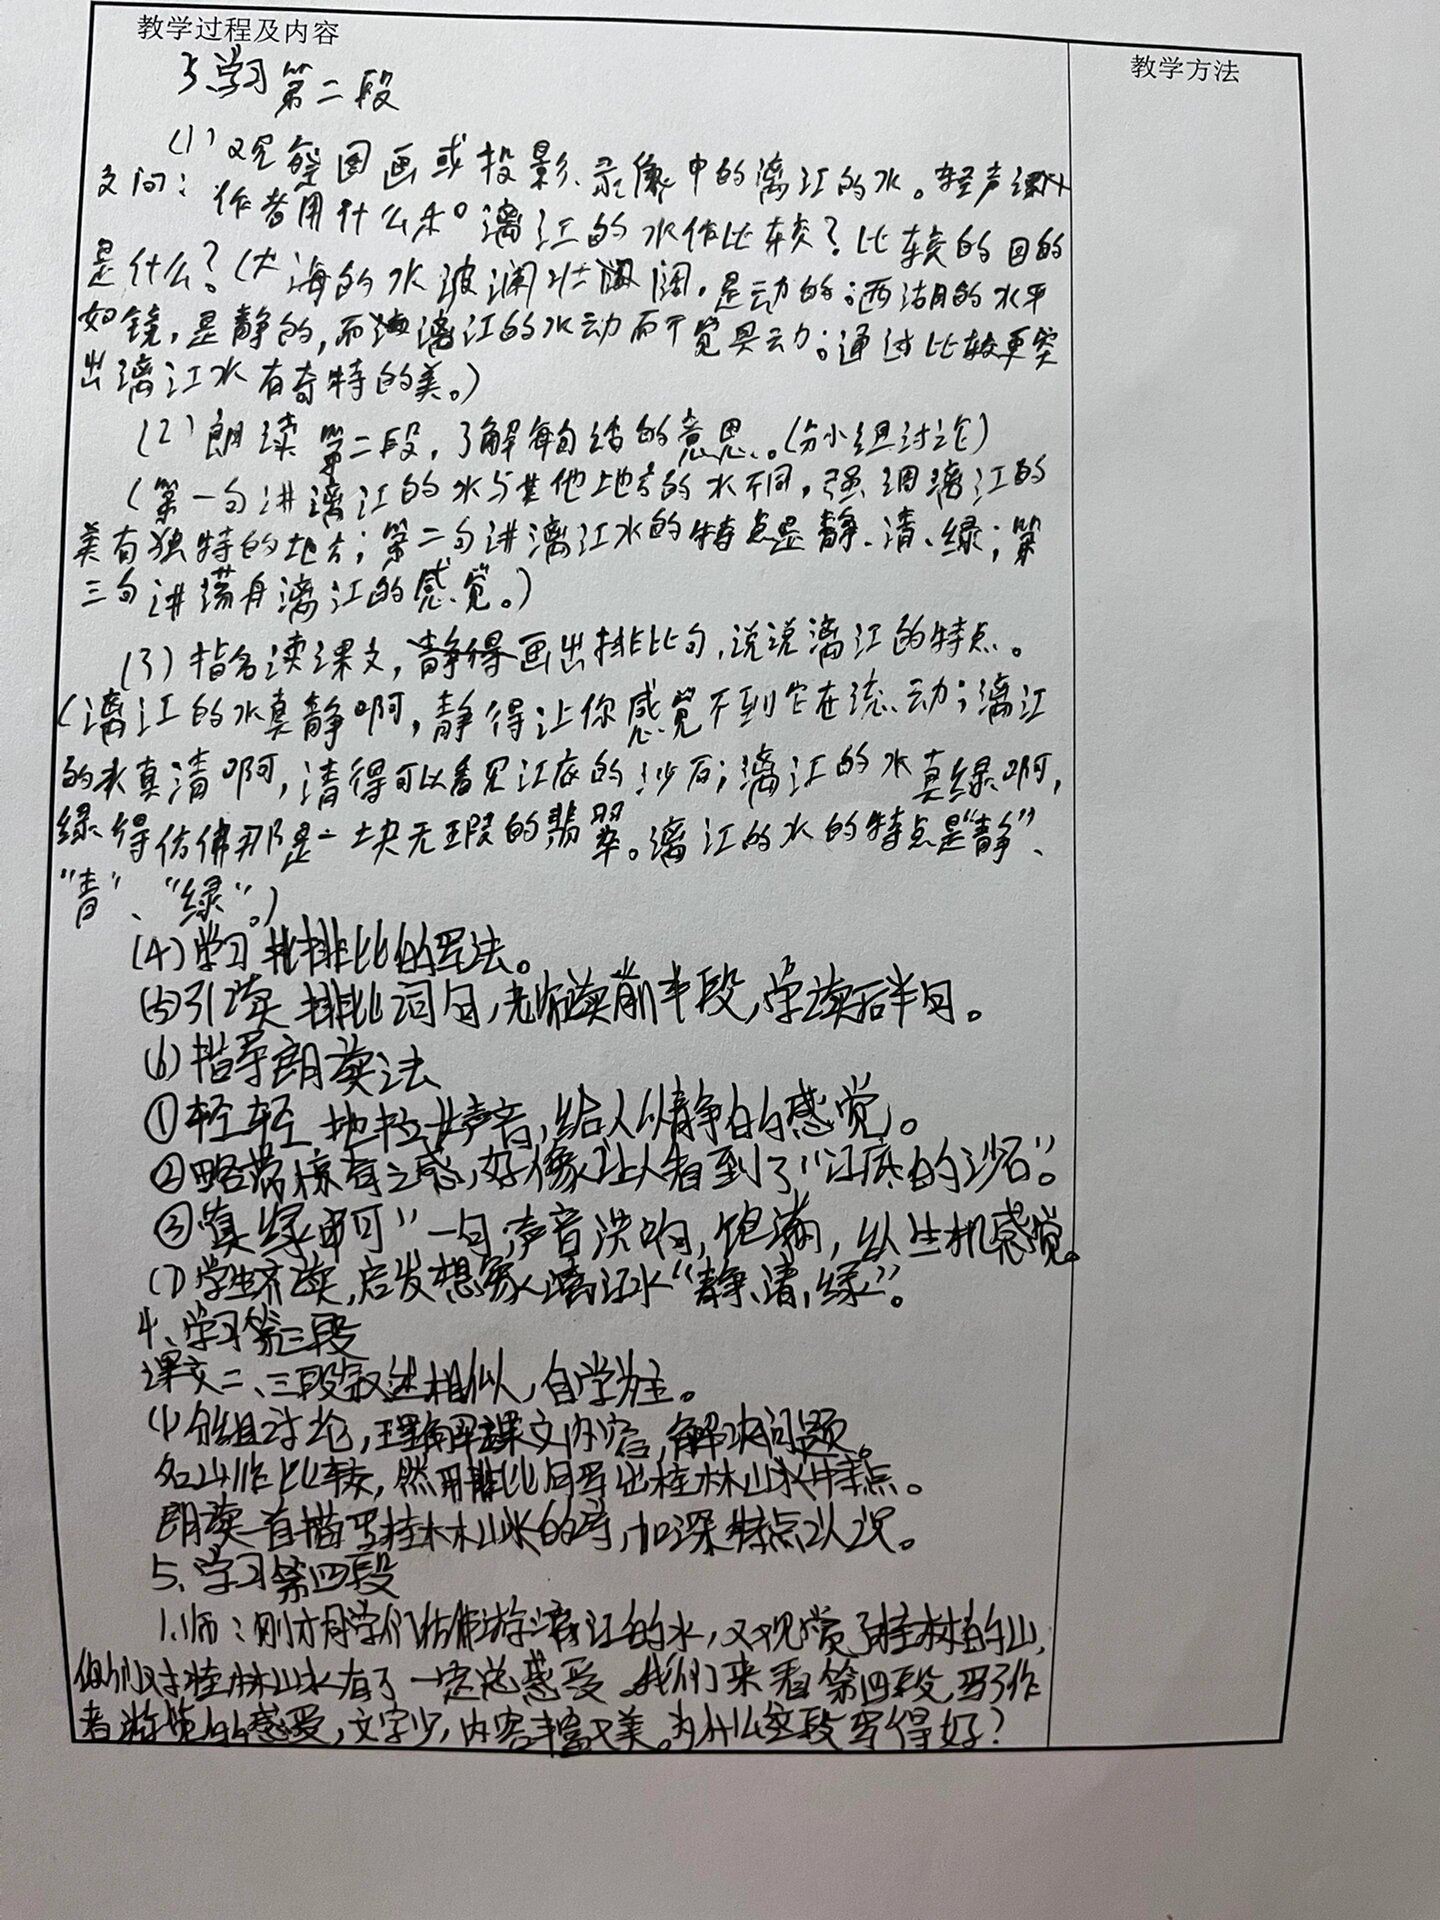 教学过程及内容
教学方法
3、学习第二段
(1)观察图画或投影、录像中的漓江的水。轻声课
文问：作者用什么和漓江的水作比较？比较的目的
是什么？(大海的水波澜壮阔，是动的；西湖的水平
如镜，是静的，而漓江的水动而不觉其动；通过比较更突
出漓江水有奇特的美。)
(2)朗读第二段，了解每句话的意思。(分小组讨论)
(第一句讲漓江的水与其他地方的水不同，强调漓江的
美有独特的地方；第二句讲漓江水的特点是静、清、绿；第
三句讲荡舟漓江的感觉。)
(3)指名读课文，画出排比句，说说漓江的特点。
(漓江的水真静啊，静得让你感觉不到它在流动；漓江
的水真清啊，清得可以看见江底的沙石；漓江的水真绿啊，
绿得仿佛那是一块无瑕的翡翠。漓江的水的特点是“静”、
“青”、“绿”。)
(4)学习排比的写法。
(5)引读排比词句，老师读前半段，学读后半句。
(6)指导朗读法
①轻轻地拉长声音，给人以静的感觉。
②略带惊奇之感，好像让人看到了“江底的沙石”。
③“真绿啊”一句，声音洪响，饱满，以生机感觉。
(7)学生齐读，启发想象漓江水“静、清、绿”。
4、学习第三段
课文二、三段叙述相似，自学为主。
(1)分组讨论，理解课文内容，解决问题。
名山作比较，然用排比句写出桂林山水特点。
朗读一首描写桂林山水的诗，加深特点认识。
5、学习第四段
1.师：刚才同学们仿佛游漓江的水，又观赏了桂林的山，
你们对桂林山水有了一定总感受。我们来看第四段，写了作
者游览的感受，文字少，内容丰富又美。为什么这段写得好？